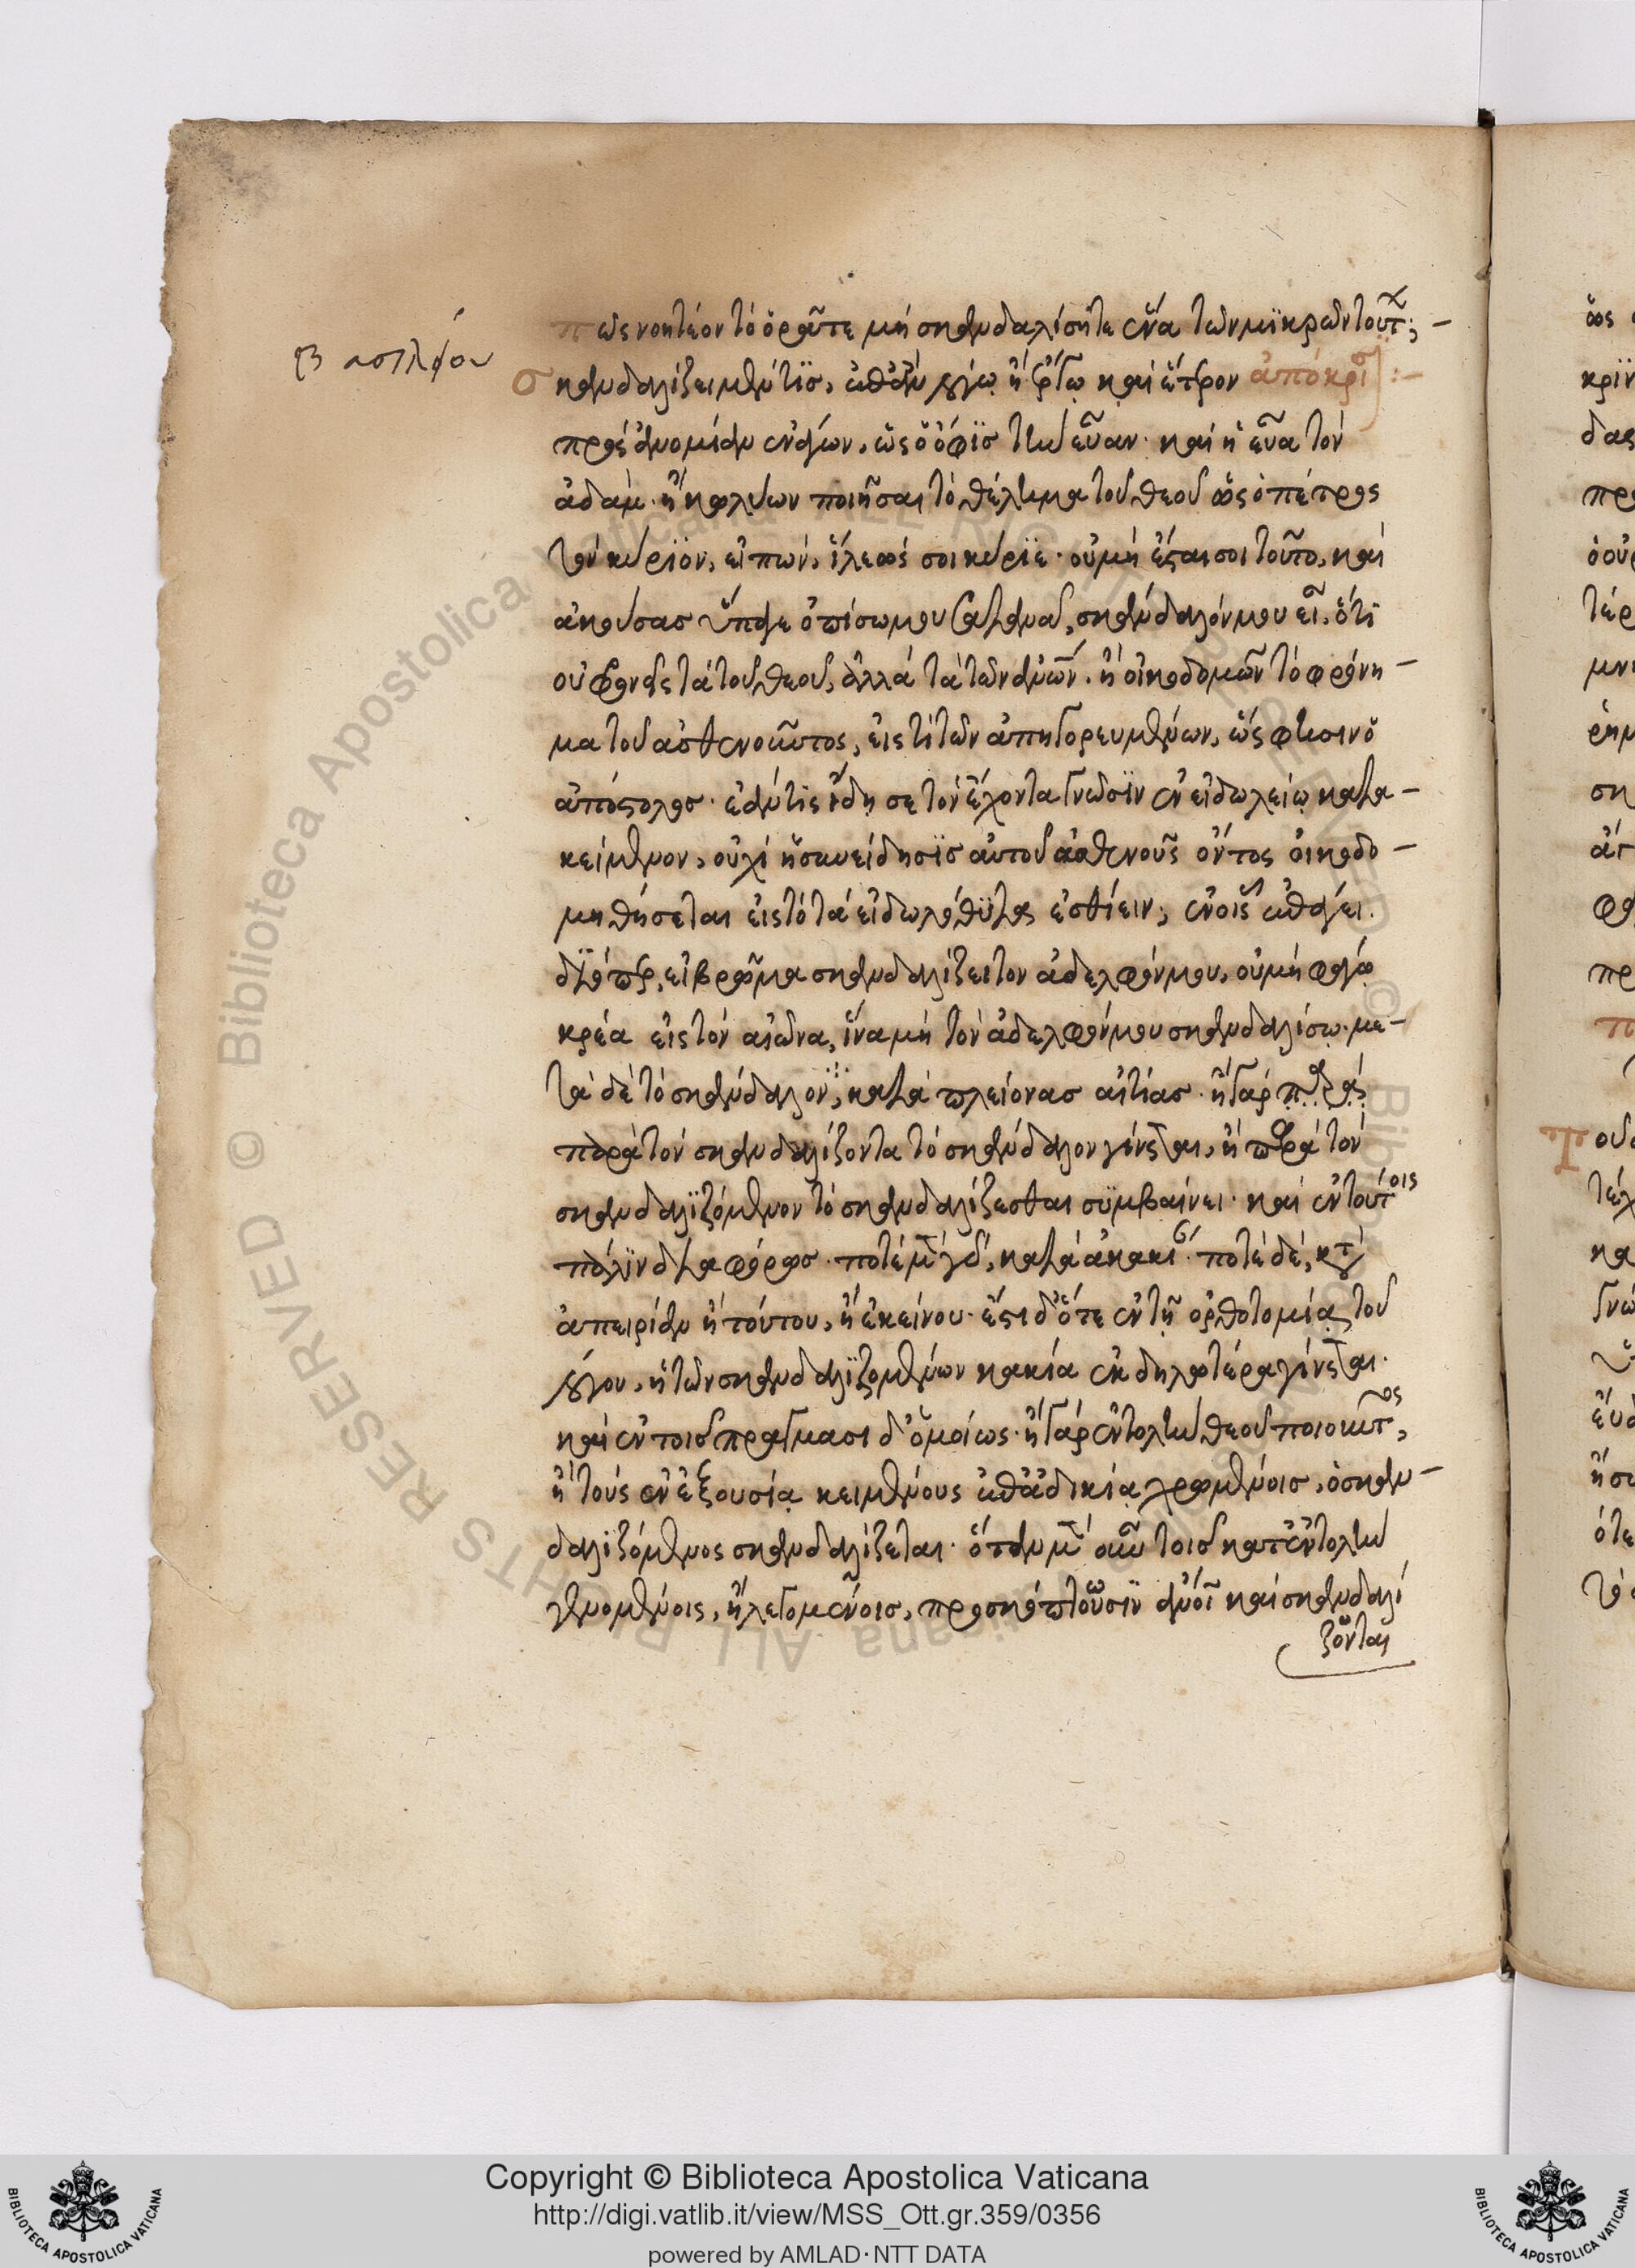 Βασιλείου
πῶς νοητέον τὸ ὁρᾶτε μὴ σκανδαλίσητε ἕνα τῶν μϊκρῶν τούτ;
σκανδαλίζει μέν τϊς, ὅταν λόγω ἢ ἔργω καὶ ἕτερον ἀπόκρϊσ
πρὸς ἀνομίαν ἐνάγων, ὡς ὁ ὄφϊς τὴν εὖαν· καὶ ἡ εὖα τὸν
ἀδάμ· ἢ κωλύων ποιῆσαι τὸ θέλημα τοῦ θεοῦ ὡς ὁ πέτρος
τὸν κύριον, εἰπὼν, ἵλεώς σοι κύριε· οὐ μὴ ἔσται σοι τοῦτο, καὶ
ἀκούσας ὕπαγε ὀπίσω μου σατανᾶ, σκάνδαλόν μου εἶ, ὅτι
οὐ φρονεῖς τὰ τοῦ θεοῦ, ἀλλὰ τὰ τῶν ἀνῶν. ἢ οἰκοδομῶν τὸ φρόνη
μα τοῦ ἀσθενοῦντος, εἰς τὶ τῶν ἀπηγορευμένων, ὥς φησιν ὁ
ἀπόστολος· ἐάν τις ἴδη σε τὸν ἔχοντα γνῶσϊν ἐν εἰδωλείω κατα
κείμενον, οὐχὶ ἡ συνείδησϊς αὐτοῦ ἀσθενοῦς ὄντος οἰκοδο
μηθήσεται εἰς τὸ τὰ εἰδωλόθϋτα ἐσθίειν; ἐν οἷς ἐπάγει.
διόπερ, εἰ βρῶμα σκανδαλίζει τὸν ἀδελφόν μου, οὐ μὴ φάγω
κρέα εἰς τὸν αἰῶνα, ἵνα μὴ τὸν ἀδελφόν μου σκανδαλίσω. με
τὰ δὲ τὸ σκάνδαλον, κατὰ πλείονας αἰτίας· ἢ γὰρ παρὰ
παρὰ τὸν σκανδαλίζοντα τὸ σκάνδαλον γίνεται, ἢ παρὰ τὸν
σκανδαλϊζόμενον τὸ σκανδαλίζεσθαι συμβαίνει· καὶ ἐν τούτοις
πάλϊν διαφόρως· ποτὲ μὲν γὰρ, κατὰ κακί· ποτὲ δὲ, κατὰ
ἀπειρίαν ἢ τούτου, ἢ ἐκείνου· ἔστι δ' ὅτε ἐν τῆ ὀρθοτομία τοῦ
λόγου, ἡ τῶν σκανδαλϊζομένων κακία ἐκδηλοτέρα γίνεται·
καὶ ἐν τοῖς πράγμασι δ' ὁμοίως· ἢ γὰρ ἐντολὴν θεοῦ ποιοῦντος,
ἢ τοὺς ἐν ἐξουσία κειμένους
δαλϊζόμενος σκανδαλίζεται· ὅταν μὲν οὖν τοῖς κατ' ἐντολὴν
γενομένοις, ἢ λεγομένοις, προσκόπτουσϊν ἄνοι καὶ σκανδαλί
ζονται